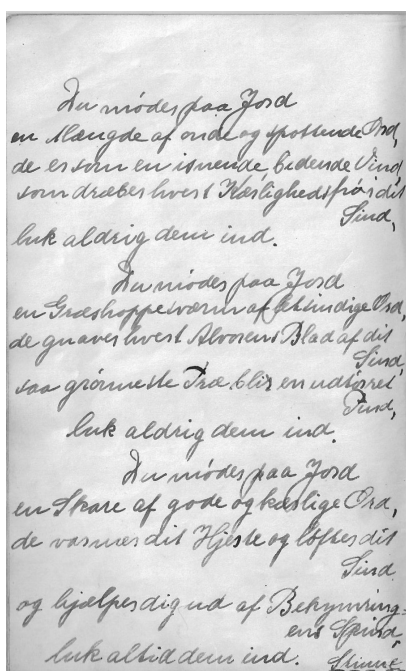 Du mødes paa Jord
en Mængde af onde og spottende Ord,
de er som en isnende, bidende Vind,
som dræber hvert Kærlighedsfrø i dit
Sind,
luk aldrig dem ind.
Du mødes paa Jord
en Græshoppesværm af letsindige Ord,
de gnaver hvert Alvorens Blad af dit
Sind,
saa grønneste Træ blir en udtørret
Pind,
luk aldrig dem ind.
Du mødes paa Jord
en Skare af gode og kærlige Ord,
de varmer dit Hjerte og løfter dit
Sind
og hjælper dig ud af Bekymring=
ens Spind,
luk altid dem ind.